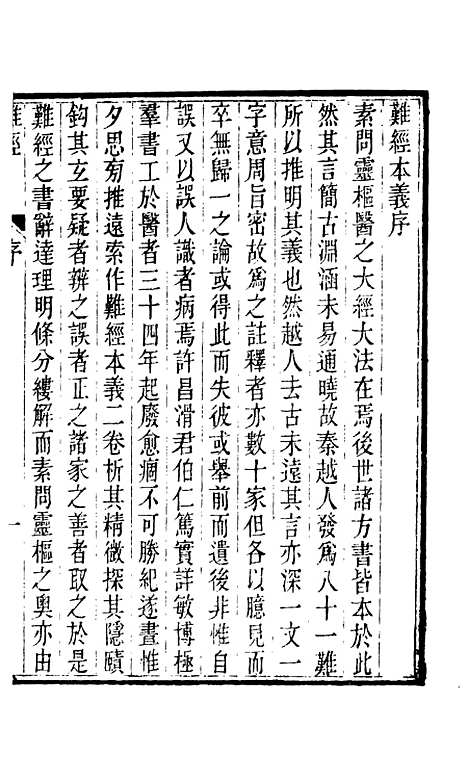 難經本義序
素問靈樞醫之大經大法在焉後世諸方書皆本於此
然其言簡古淵涵未易通曉故秦越人發爲八十一難
所以推明其義也然越人去古未遠其言亦深一文一
字意周旨密故爲之註釋者亦數十家但各以臆見而
卒無歸一之論或得此而失彼或舉前而遺後非惟自
誤又以誤人識者病焉許昌滑君伯仁篤實詳敏博極
羣書工於醫者三十四年起廢愈痼不可勝紀遂晝惟
夕思旁推遠索作難經本義二卷析其精微探其隱賾
鈎其玄要疑者辨之誤者正之諸家之善者取之於是
難經之書辭達理明條分縷解而素問靈樞之奧亦由
難經 序 一